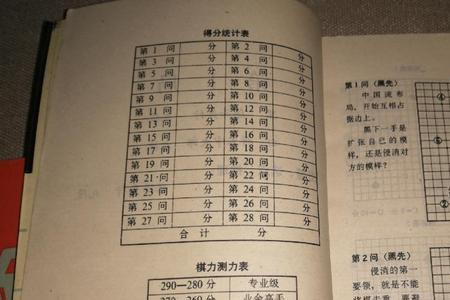 得分统计表
第 1 问 分 第 2 问 分
第 3 问 分 第 4 问 分
第 5 问 分 第 6 问 分
第 7 问 分 第 8 问 分
第 9 问 分 第 10 问 分
第 11 问 分 第 12 问 分
第 13 问 分 第 14 问 分
第 15 问 分 第 16 问 分
第 17 问 分 第 18 问 分
第 19 问 分 第 20 问 分
第 21 问 分 第 22 问 分
第 23 问 分 第 24 问 分
第 25 问 分 第 26 问 分
第 27 问 分 第 28 问 分
合 计 分
棋力测力表
290—280分 专业级
270—260分 业余高手
第1问（黑先）
中国流布
局，开始互相占
据边上。
黑下一手是
扩张自己的模
样，还是侵消对
方的模样？
第2问（黑先）
侵消的第一
要领，就是不能